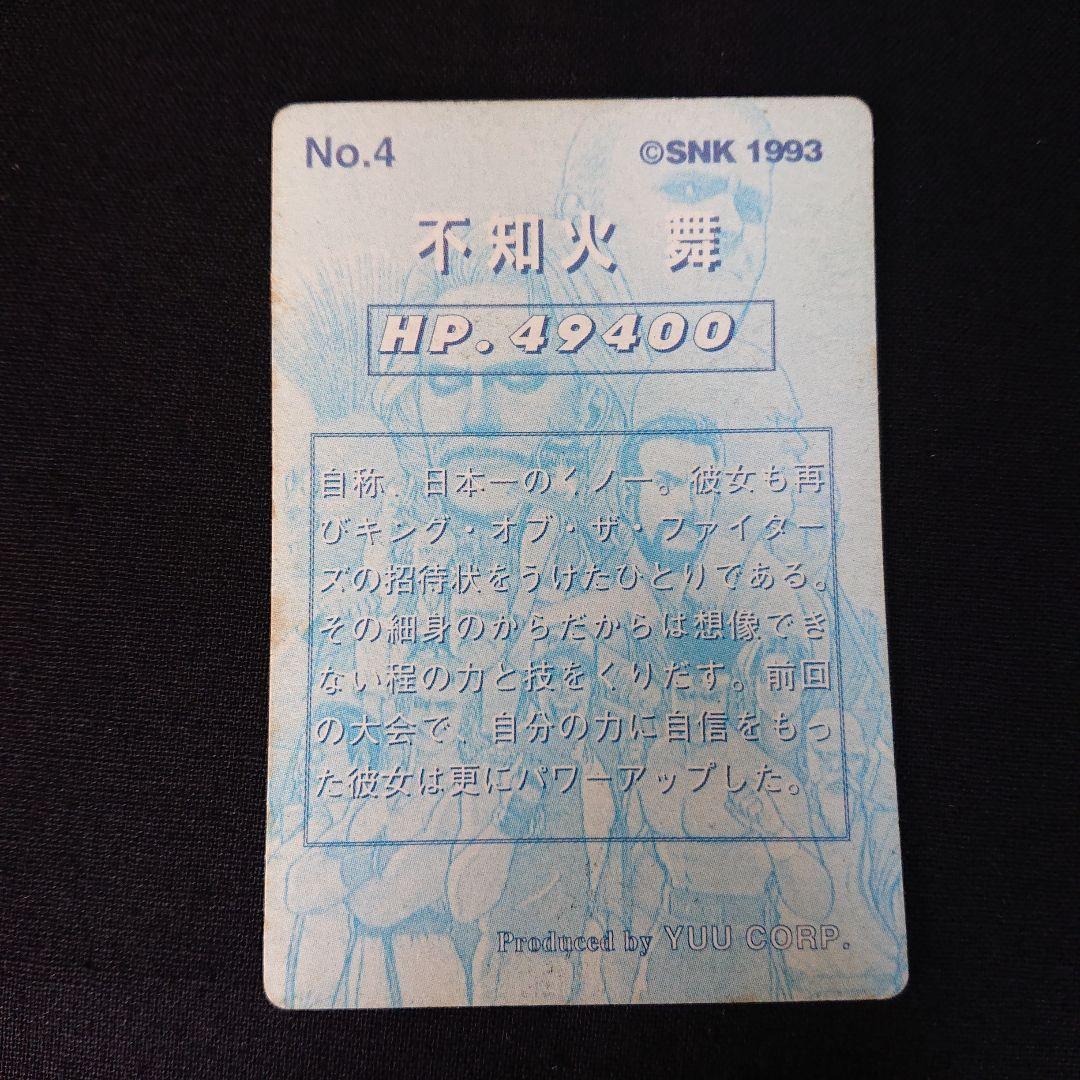 No.4
©SNK 1993
不知火 舞
HP.49400
自称、日本一のくノ一。彼女も再
びキング・オブ・ザ・ファイター
ズの招待状をうけたひとりである。
その細身のからだからは想像でき
ない程の力と技をくりだす。前回
の大会で、自分の力に自信をもっ
た彼女は更にパワーアップした。
Produced by YUU CORP.